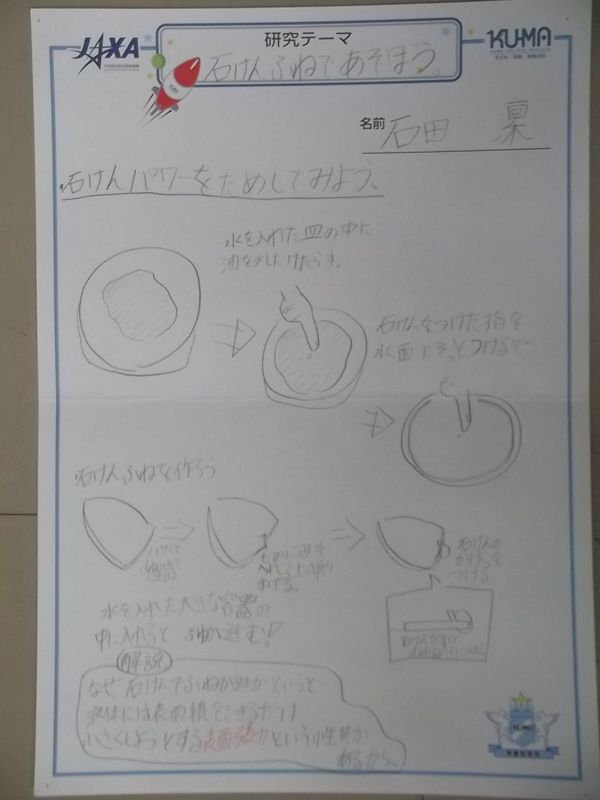 JAXA
研究テーマ
KUMA
石けんふねであそぼう。
名前 石田 稟
・石けんパワーをためしてみよう。
水を入れた皿の中に
油を少したけたらす。
石けんをつけた指を
水面にそっとつけると…
・石けんふねを作ろう
石けんの
かけらを
つける
水を入れた大きな容器の
中に入れると ふねが進む!
解説
なぜ石けんでふねが進かというと…
液体には表面積をできるだけ
小さくしようとする表面張力という性質が
あるから。
KUMA